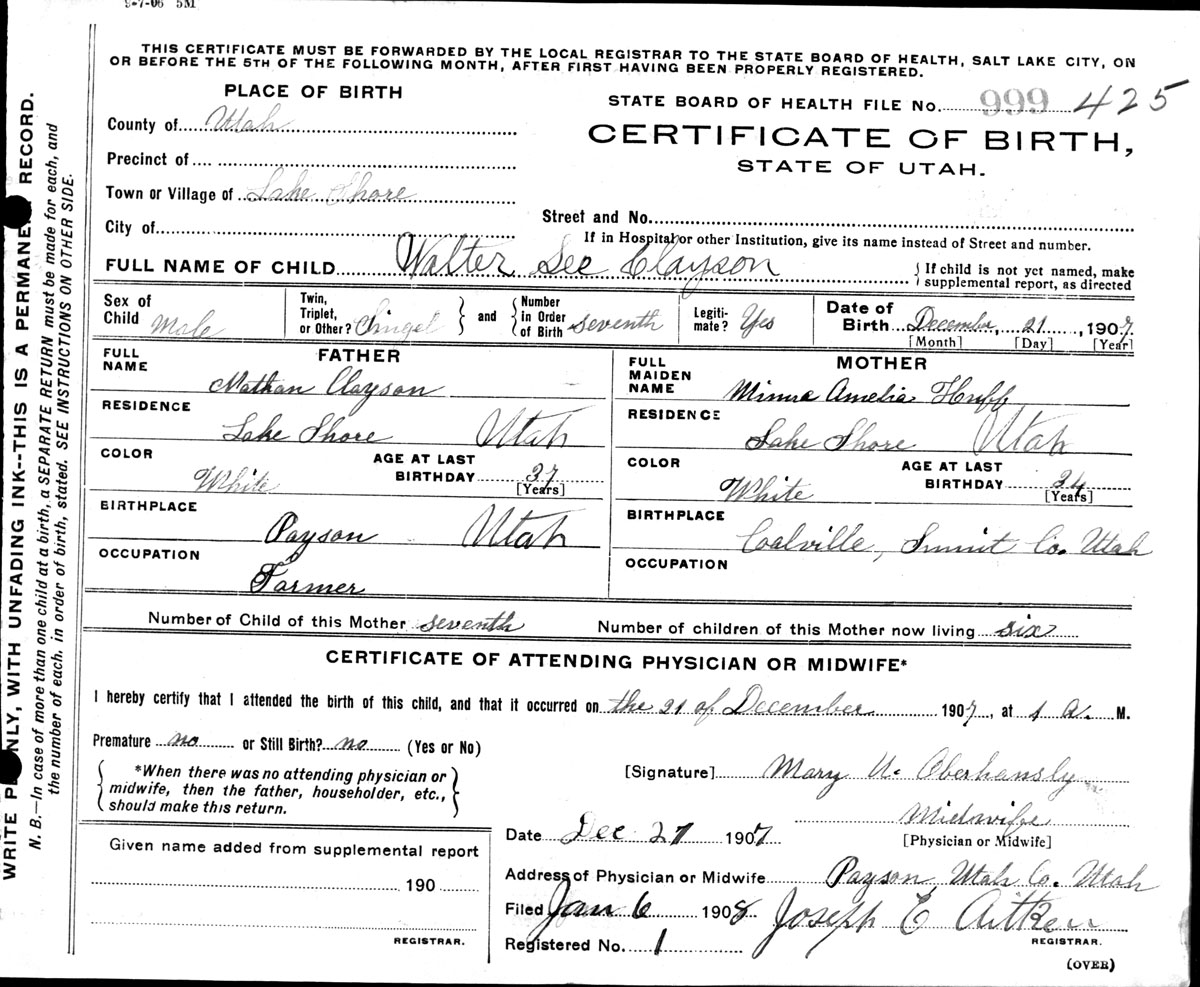 9-7-06 5M
THIS CERTIFICATE MUST BE FORWARDED BY THE LOCAL REGISTRAR TO THE STATE BOARD OF HEALTH, SALT LAKE CITY, ON
OR BEFORE THE 5TH OF THE FOLLOWING MONTH, AFTER FIRST HAVING BEEN PROPERLY REGISTERED.
WRITE PLAINLY, WITH UNFADING INK--THIS IS A PERMANENT RECORD.
N. B.—In case of more than one child at a birth, a SEPARATE RETURN must be made for each, and
the number of each, in order of birth, stated. SEE INSTRUCTIONS ON OTHER SIDE.
PLACE OF BIRTH
County of Utah
Precinct of
Town or Village of Lake Shore
City of
STATE BOARD OF HEALTH FILE No. 999 425
CERTIFICATE OF BIRTH,
STATE OF UTAH.
Street and No.
If in Hospital or other Institution, give its name instead of Street and number.
FULL NAME OF CHILD Walter Lee Clayson
{ If child is not yet named, make
supplemental report, as directed
Sex of Child Male
Twin, Triplet, or Other? Chingel } and { Number in Order of Birth seventh
Legiti-mate? Yes
Date of Birth December 21, 1907
[Month] [Day] [Year]
FATHER
FULL NAME Nathan Clayson
RESIDENCE
Lake Shore Utah
COLOR White
AGE AT LAST BIRTHDAY 37
[Years]
BIRTHPLACE
Payson Utah
OCCUPATION
Farmer
MOTHER
FULL MAIDEN NAME Minna Amelia Huff
RESIDENCE
Lake Shore Utah
COLOR White
AGE AT LAST BIRTHDAY 34
[Years]
BIRTHPLACE
Coalville, Sumit Co. Utah
OCCUPATION
Number of Child of this Mother seventh Number of children of this Mother now living six
CERTIFICATE OF ATTENDING PHYSICIAN OR MIDWIFE*
I hereby certify that I attended the birth of this child, and that it occurred on the 21 of December 1907, at 1 A. M.
Premature no or Still Birth? no (Yes or No)
{ *When there was no attending physician or
midwife, then the father, householder, etc.,
should make this return. }
[Signature] Mary U. Oberhansly
Midwife
[Physician or Midwife]
Given name added from supplemental report
190
REGISTRAR.
Date Dec 27 1907
Address of Physician or Midwife Payson Utah Co. Utah
Filed Jan 6 1908 Joseph E Aitken
REGISTRAR.
Registered No. 1
(OVER)